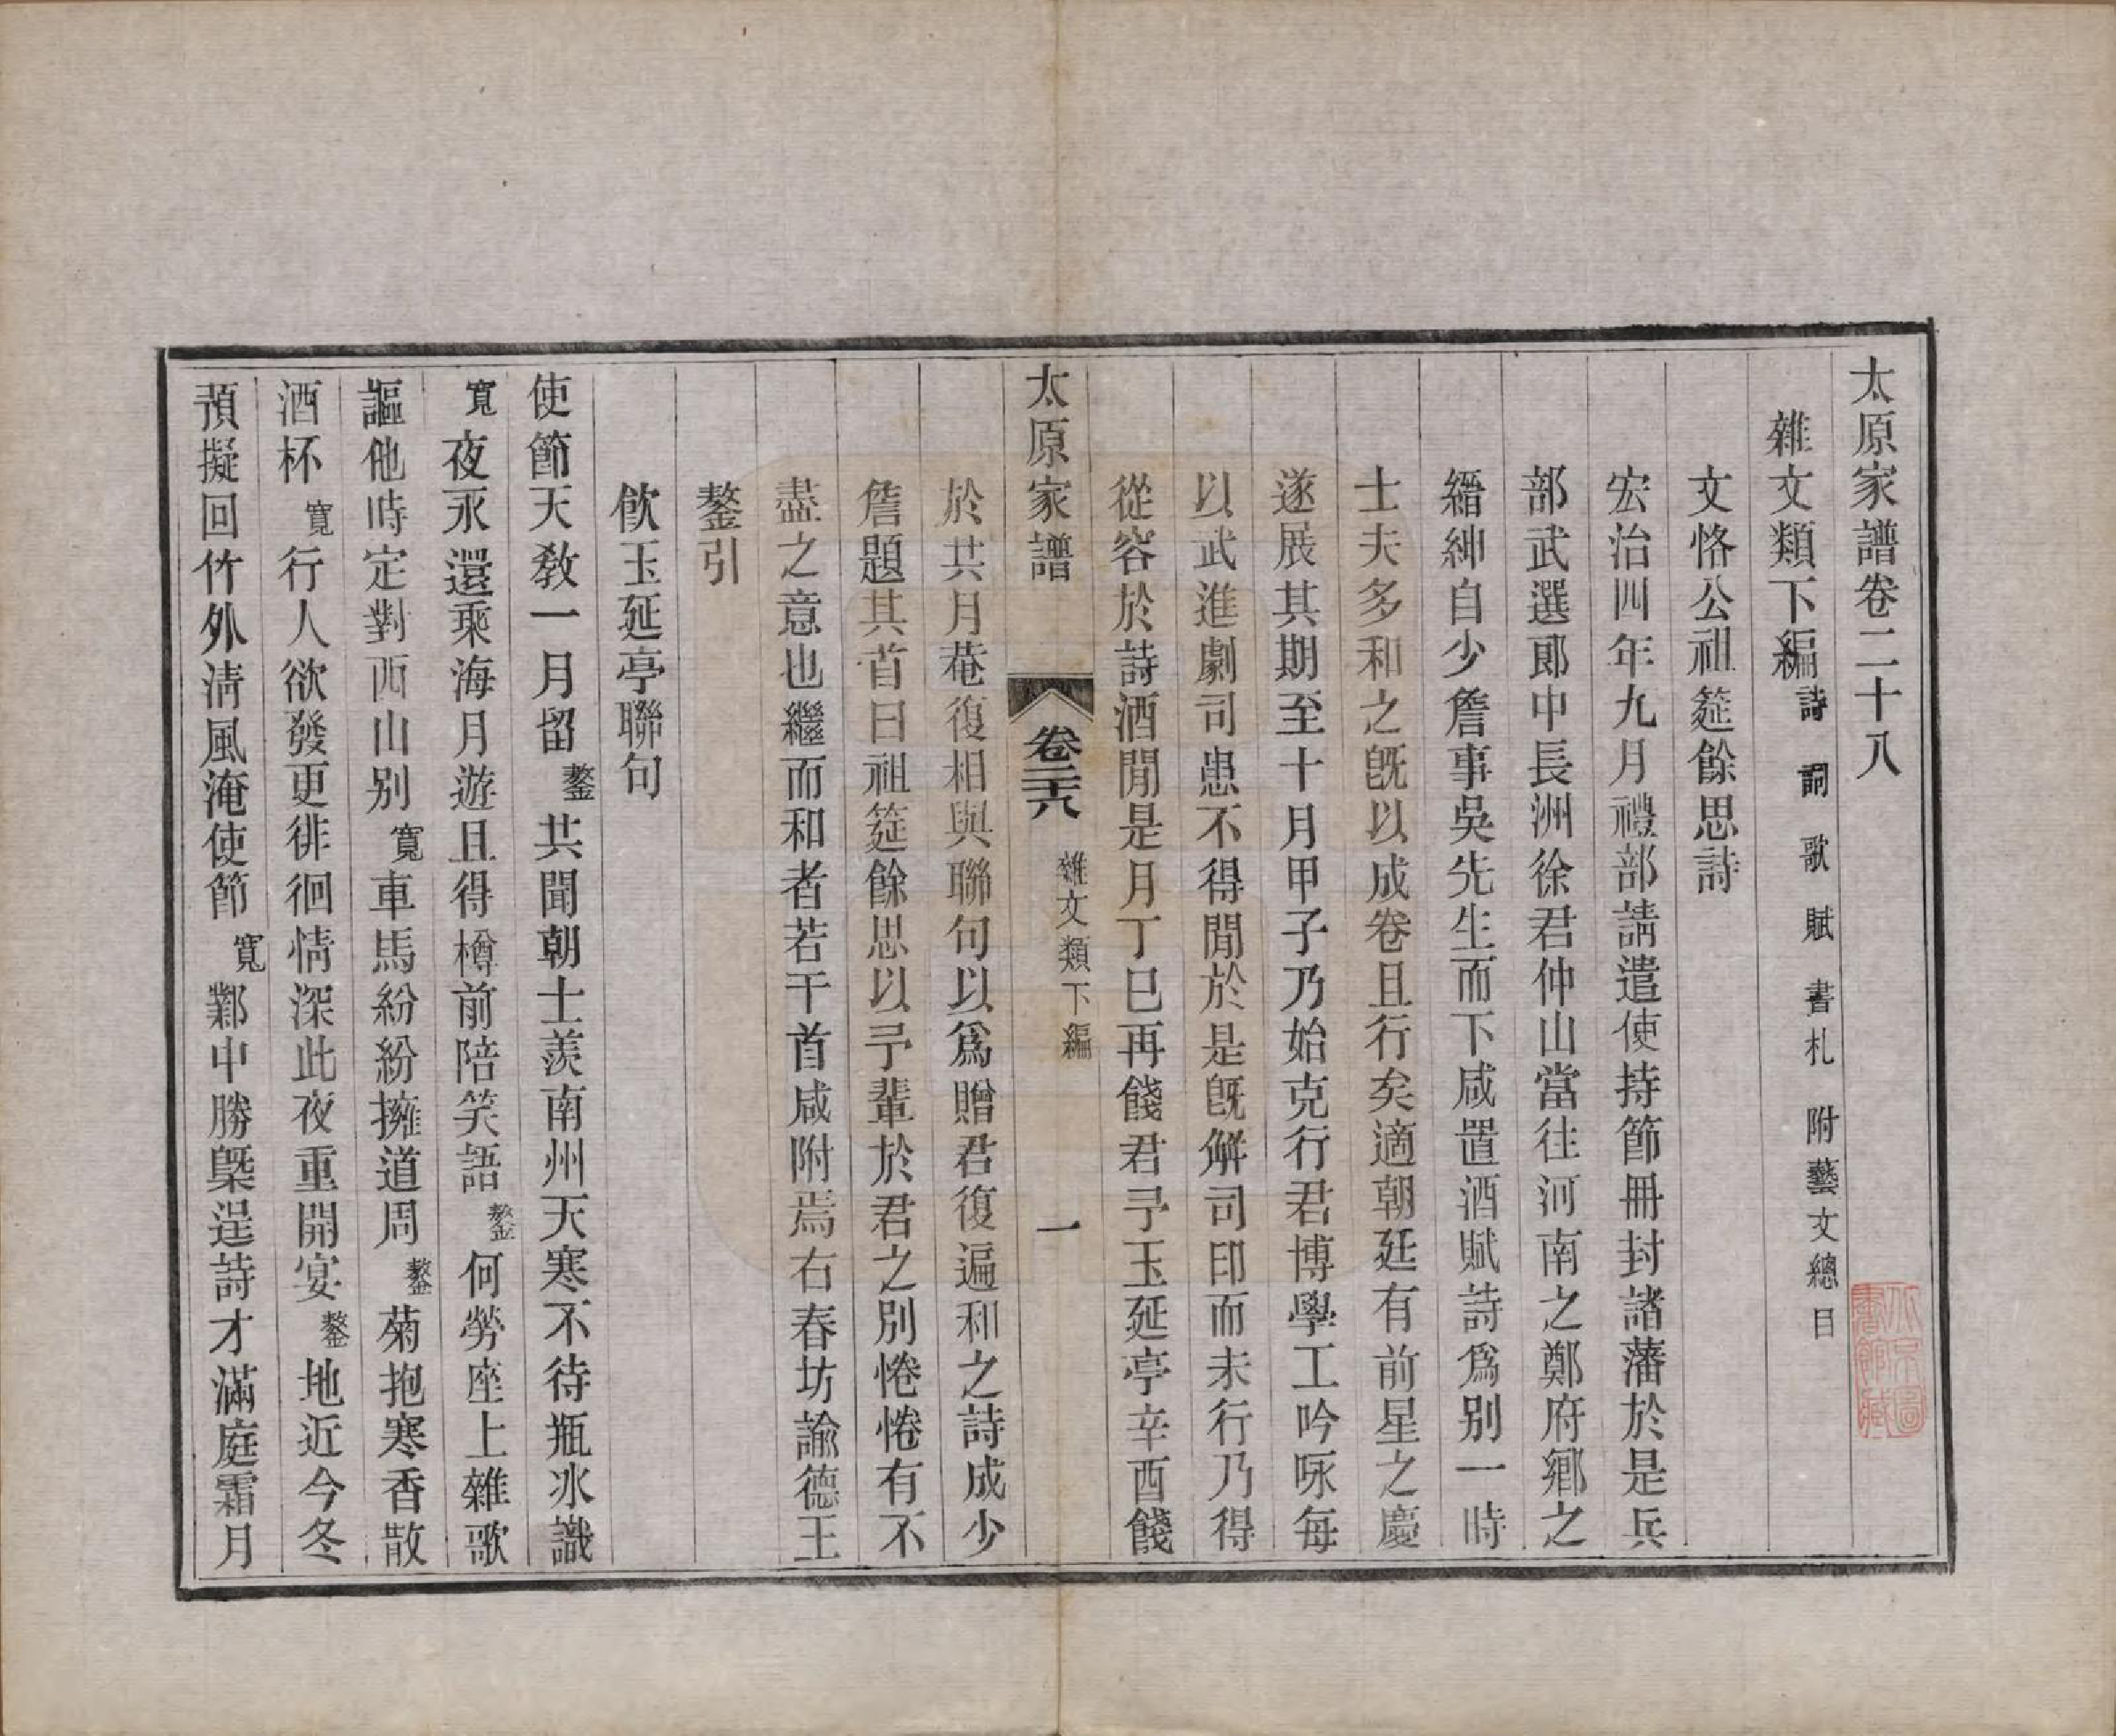 太原家譜卷二十八
雜文類下編詩 詞 歌 賦 書札 附藝文總目
文恪公祖筵餘思詩
宏治四年九月禮部請遣使持節冊封諸藩於是兵
部武選郞中長洲徐君仲山當往河南之鄭府鄕之
縉紳自少詹事吳先生而下咸置酒賦詩爲别一時
士夫多和之旣以成卷且行矣適朝廷有前星之慶
遂展其期至十月甲子乃始克行君博學工吟咏每
以武進劇司患不得閒於是旣解司印而未行乃得
從容於詩酒閒是月丁巳再餞君予玉延亭辛酉餞
太原家譜 卷二十八 雜文類下編 一
於共月菴復相與聯句以爲贈君復遍和之詩成少
詹題其首曰祖筵餘思以予輩於君之別惓惓有不
盡之意也繼而和者若干首咸附焉右春坊諭德王
鏊引
飮玉延亭聯句
使節天教一月留鏊共聞朝士羨南州天寒不待瓶冰識
寬夜永還乘海月遊且得樽前陪笑語鏊何勞座上雜歌
謳他時定對西山别寬車馬紛紛擁道周鏊菊抱寒香散
酒杯寬行人欲發更徘徊情深此夜重開宴鏊地近今冬
預擬回竹外淸風淹使節寬鄴中勝槩逞詩才滿庭霜月